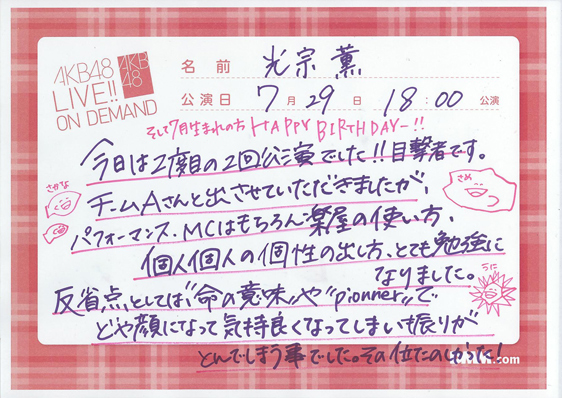 AKB48
LIVE!!
ON DEMAND
AKB
48
名前 光宗 薫
公演日 7月29日 18:00 公演
そして7月生まれの方 HAPPY BIRTHDAY-!!
今日は2度目の2回公演でした!!目撃者です。
さかな
チームAさんと出させていただきましたが、
さめ
パフォーマンス、MCはもちろん楽屋の使い方、
個人個人の個性の出し方、とても勉強に
なりました。
うに
反省点としては"命の意味"や"pionner"で
どや顔になって気持良くなってしまい振りが
とんでしまう事でした。その位たのしかった!
.com